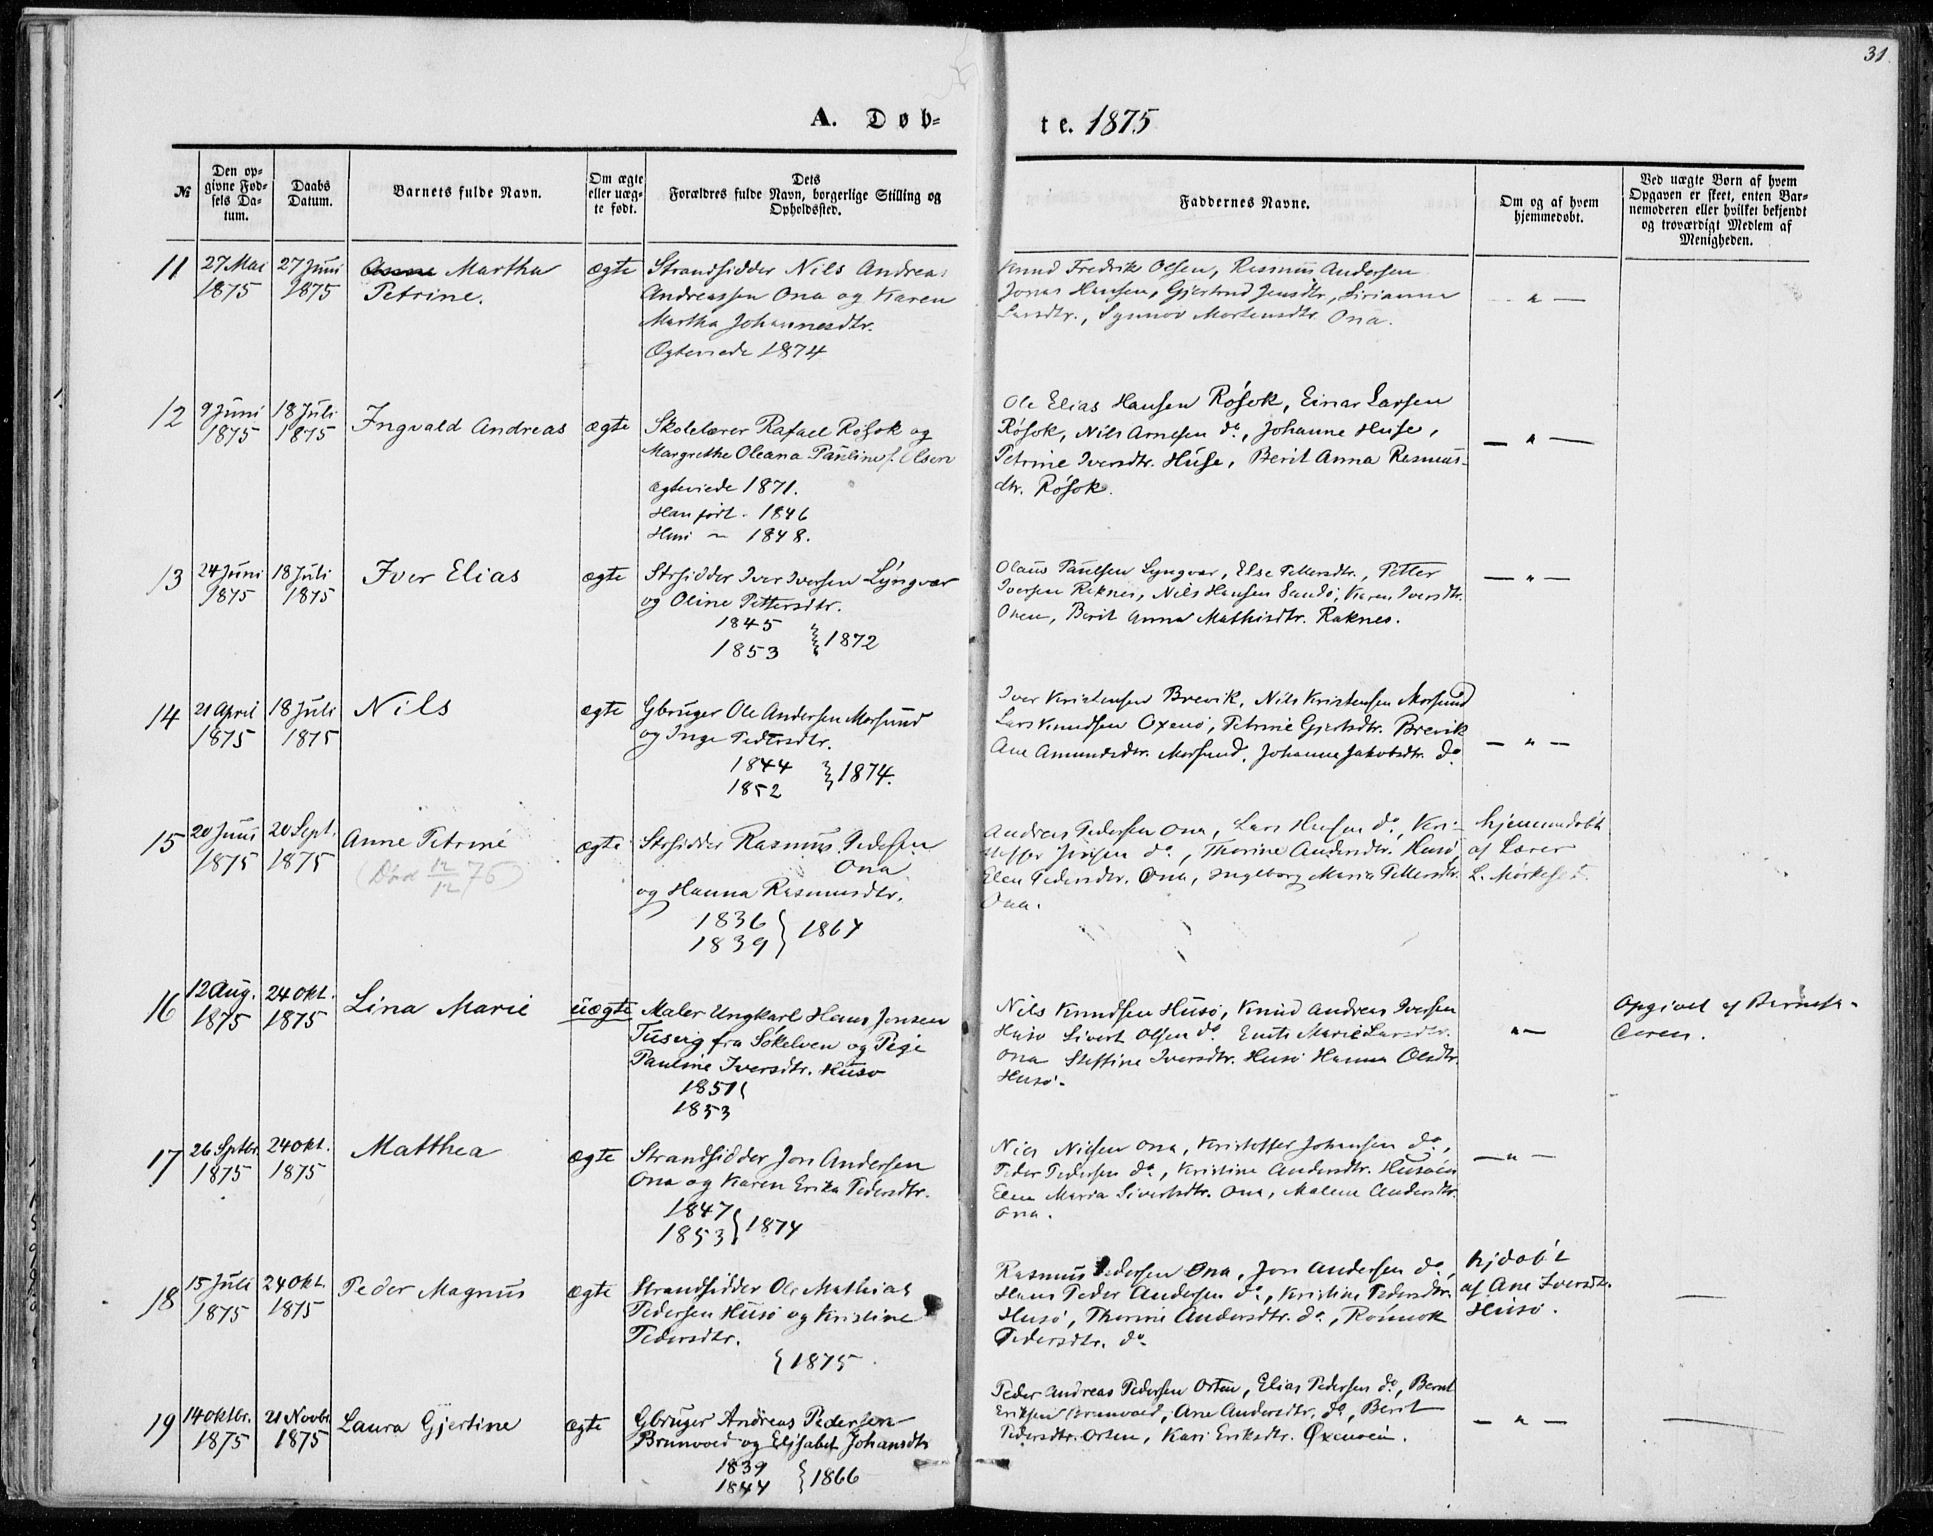 31
A. Døb-
te. 1875
№
Den op-
givne Fød-
sels Da-
tum.
Daabs
Datum.
Barnets fulde Navn.
Om ægte
eller uæg-
te født.
Dets
Forældres fulde Navn, borgerlige Stilling og
Opholdssted.
Faddernes Navne.
Om og af hvem
hjemmedøbt.
Ved uægte Børn af hvem
Opgaven er skeet, enten Bar-
nemoderen eller hvilket bekjendt
og troværdigt Medlem af
Menigheden.
11
27 Mai
1875
27 Juni
1875
Anne Martha
Petrine.
ægte
Strandsidder Nils Andreas
Andreassen Ona og Karen
Martha Johannesdtr.
Ægteviede 1874
Knud Fredrik Olsen, Rasmus Andersen
Jonas Hansen, Gjertrud Jensdtr, Sirianna
Larsdtr., Synnøv Mortensdtr. Ona.
— " —
12
9 Juni
1875
18 Juli
1875
Ingvald Andreas
ægte
Skolelærer Rafael Røsok og
Margrethe Oleana Pauline f. Olsen
ægteviede 1871.
Han født. 1846
Hun ~ 1848.
Ole Elias Hansen Røsok, Einar Larsen
Røsok, Nils Arnesen do., Johanne Huse,
Petrine Iversdtr. Huse, Berit Anna Rasmus-
dtr. Røsok.
— " —
13
24 Juni
1875
18 Juli
1875
Iver Elias
ægte
Strsidder Iver Iversen Lyngvær
og Oline Pettersdtr.
1845
1853 } 1872
Olaus Paulsen Lyngvær, Else Pettersdtr., Petter
Iversen Reknes, Nils Hansen Sandø, Karen Iversdtr.
Onen, Berit Anna Mathisdtr. Raknes.
— " —
14
21 April
1875
18 Juli
1875
Nils
ægte
Gbruger Ole Andersen Morsund
og Inge Pedersdtr.
1844
1852 } 1874.
Iver Kristensen Brevik, Nils Kristensen Morsund
Lars Knudsen Oxenø, Petrine Gjertsdtr. Brevik
Ane Amundsdtr. Morsund, Johanne Jakobsdtr. do.
— " —
15
20 Juni
1875
20 Sept.
1875
Anne Petrine
(Død 12/12 76)
ægte
Strsidder Rasmus Pedersen
Ona
og Hanna Rasmusdtr.
1836
1839 } 1867
Andreas Pedersen Ona, Lars Hansen do., Kri-
stoffer Jensen do., Thorine Andersdtr. Husø,
Elen Pedersdtr. Ona, Ingeborg Maria Pettersdtr.
Ona.
hjemmedøbt
af Lærer
L. Mørkeset.
16
12 Aug.
1875
24 Okt.
1875
Lina Marie
uægte
Maler Ungkarl Hans Jensen
Tusvig fra Søkelven og Pige
Pauline Iversdtr. Husø
1851
1853
Nils Knudsen Husø, Knud Andreas Iversen
Husø Sivert Olsen do. Marie Larsdtr.
Ona Steffine Iversdtr. Husø Hanna Olsdtr.
Husø.
" —
Opgivet af Barnefa-
deren.
17
26 Septbr.
1875
24 Okt.
1875
Matthea
ægte
Strandsidder Jon Andersen
Ona og Karen Erika Pedersdtr.
1847
1853 } 1874
Nils Nilsen Ona, Kristoffer Johansen do.,
Peder Pedersen do., Kristine Andersdtr. Husøen
Elen Maria Sivertsdtr. Ona, Malene Andersdtr.
Ona.
— " —
18
15 Juli
1875
24 Okt.
1875
Peder Magnus
ægte
Strandsidder Ole Mathias
Pedersen Husø og Kristine
Pedersdtr.
} 1875.
Rasmus Pedersen Ona, Jon Andersen do.,
Hans Peder Andersen do., Kristine Pedersdtr.
Husø, Thorine Andersdtr. do., Rønnok
Pedersdtr. do.
hjdøbt
af Ane Iversdtr.
Husø.
—
19
14 Oktbr.
1875
21 Novbr.
1875
Laura Gjertine
ægte
Gbruger Andreas Pedersen
Brunvoed og Elisabet Johansdtr
1839
1844 } 1866
Peder Andreas Pedersen Orten, Elias Pedersen do., Bernt
Eriksen Brunvoed, Ane Andersdtr. do., Berit
Pedersdtr. Orten, Kari Eriksdtr. Øxenøen.
— " —
—